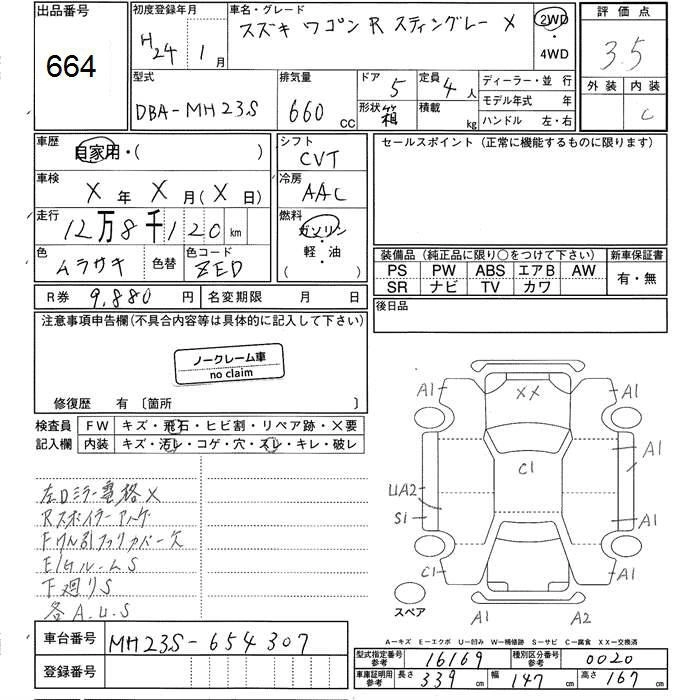 出品番号
664
初度登録年月
H24年1月
車名・グレード
スズキ ワゴンR スティングレー X
2WD
・
4WD
評価点
3.5
外装 内装
C
型式
DBA-MH23S
排気量
660 CC
ドア 5
形状 箱
定員 4人
積載 kg
ディーラー・並行
モデル年式 年
ハンドル 左・右
車歴
自家用・( )
車検
X年X月(X日)
走行
12万8千120km
色
ムラサキ
色替
色コード
ZED
シフト
CVT
冷房
AAC
燃料
ガソリン
・
軽・油
( )
セールスポイント(正常に機能するものに限ります)
装備品(純正品に限り○をつけて下さい)
新車保証書
PS PW ABS エアB AW
SR ナビ TV カワ
有・無
R券 9,880円
名変期限 月 日
後日品
注意事項申告欄(不具合内容等は具体的に記入して下さい)
ノークレーム車
no claim
修復歴 有 〔箇所 〕
検査員
記入欄
FW キズ・飛石・ヒビ割・リペア跡・X要
内装 キズ・汚レ・コゲ・穴・スレ・キレ・破レ
左Dミラー電格X
Rスポイラーアハケ
Fけん引フックカバー欠
E/GルームS
下廻りS
各A.U.S
A1
XX
A1
A1
C1
UA2
S1
A1
C1
A1
スペア
A1
A2
A−キズ E−エクボ U−凹み W−補修跡 S−サビ C−腐食 XX−交換済
車台番号
MH23S-654307
登録番号
型式指定番号
参考
16169
種別区分番号
参考
0020
車庫証明用
参考
長さ 339cm
幅 147cm
高さ 167cm